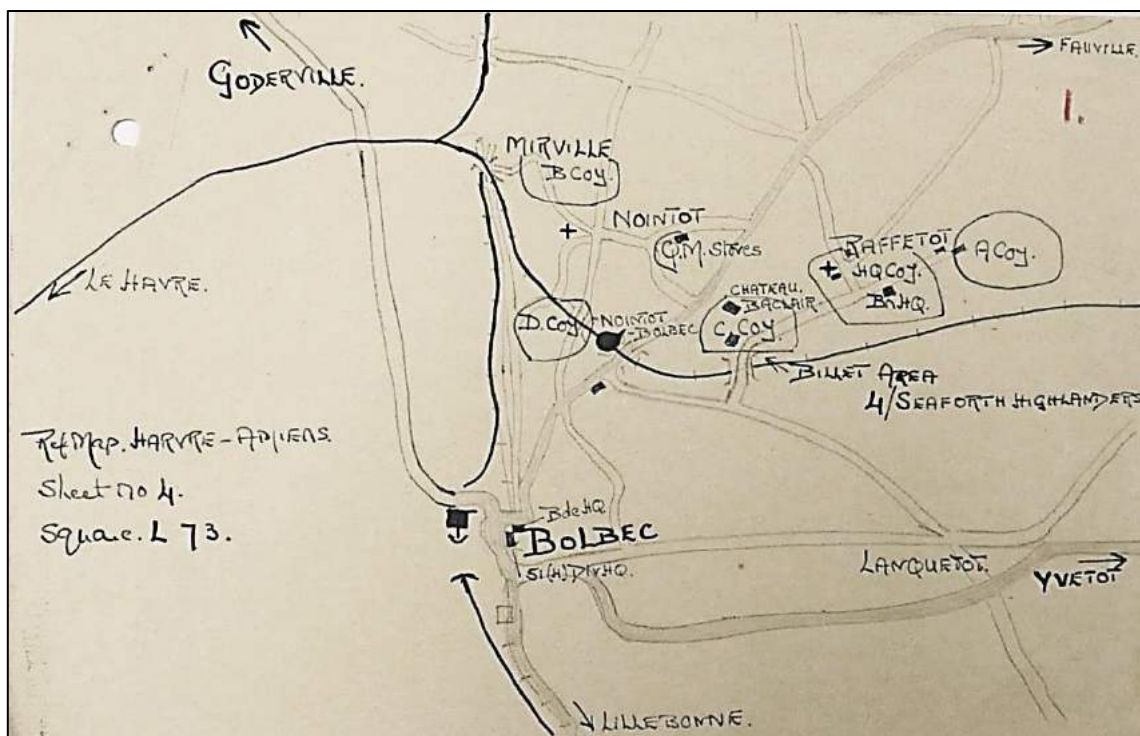 GODERVILLE.
FAUVILLE.
1.
MIRVILLE
B COY.
NOINTOT
Q.M. Stores
RAFFETOT
HQ COY.
A COY.
Bn HQ.
LE HAVRE.
CHATEAU.
BACLAIR
D. COY
NOINTOT
-BOLBEC
C. COY
BILLET AREA
4/SEAFORTH HIGHLANDERS
Ref Map. HARVRE-AMIENS.
Sheet no 4.
Square. L 73.
Bde HQ
BOLBEC
51(H) DIV HQ.
LANQUETOT.
YVETOT
LILLEBONNE.